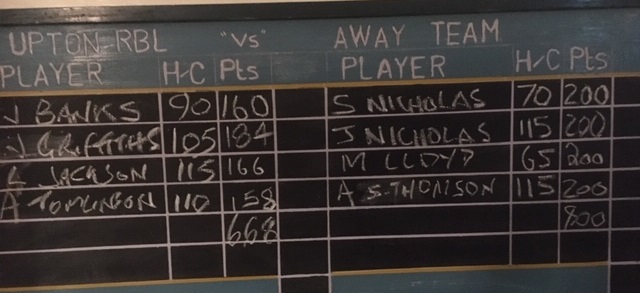 UPTON RBL "VS" AWAY TEAM
PLAYER H/C Pts PLAYER H/C Pts
J BANKS 90 160 S NICHOLAS 70 200
J GRIFFITHS 105 184 J NICHOLAS 115 200
JACKSON 115 166 M LLOYD 65 200
A TOMLINSON 110 158 A S.THOMSON 115 200
668 800